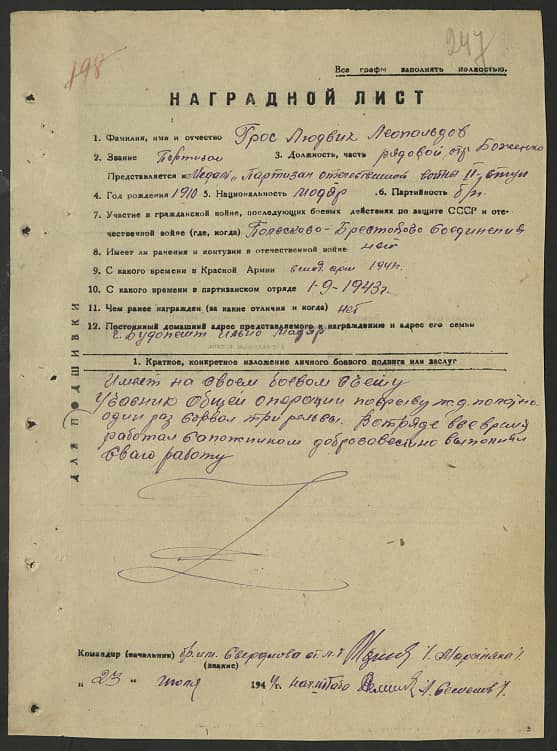 198
247
Все графы заполнять полностью.
НАГРАДНОЙ ЛИСТ
1. Фамилия, имя и отчество Грос Людвих Леопольдов
2. Звание Партизан 3. Должность, часть рядовой отр. Боженко
Представляется „Медаль" Партизан отечественной войны II степ
4. Год рождения 1910 5. Национальность мадяр 6. Партийность б/п
7. Участие в гражданской войне, последующих боевых действиях по защите СССР и оте-
чественной войне (где, когда) Соединения
8. Имеет ли ранения и контузии в отечественной войне нет
9. С какого времени в Красной Армии
10. С какого времени в партизанском отряде 1-9-1943г.
11. Чем ранее награжден (за какие отличия и когда) нет
12. Постоянный домашний адрес представляемого к награждению и адрес его семьи
г. Будопешт
1. Краткое, конкретное изложение личного боевого подвига или заслуг
Имеет на своем боевом счету
Учасник общей операции ж.д.
один раз взорвал три рельсы. В отряде все время
работал сапожником добросовесно
сваю работу
ДЛЯ ПОДШИВКИ
Командир (начальник) ст. л-т
(звание)
„ 23 " июля 1944г.